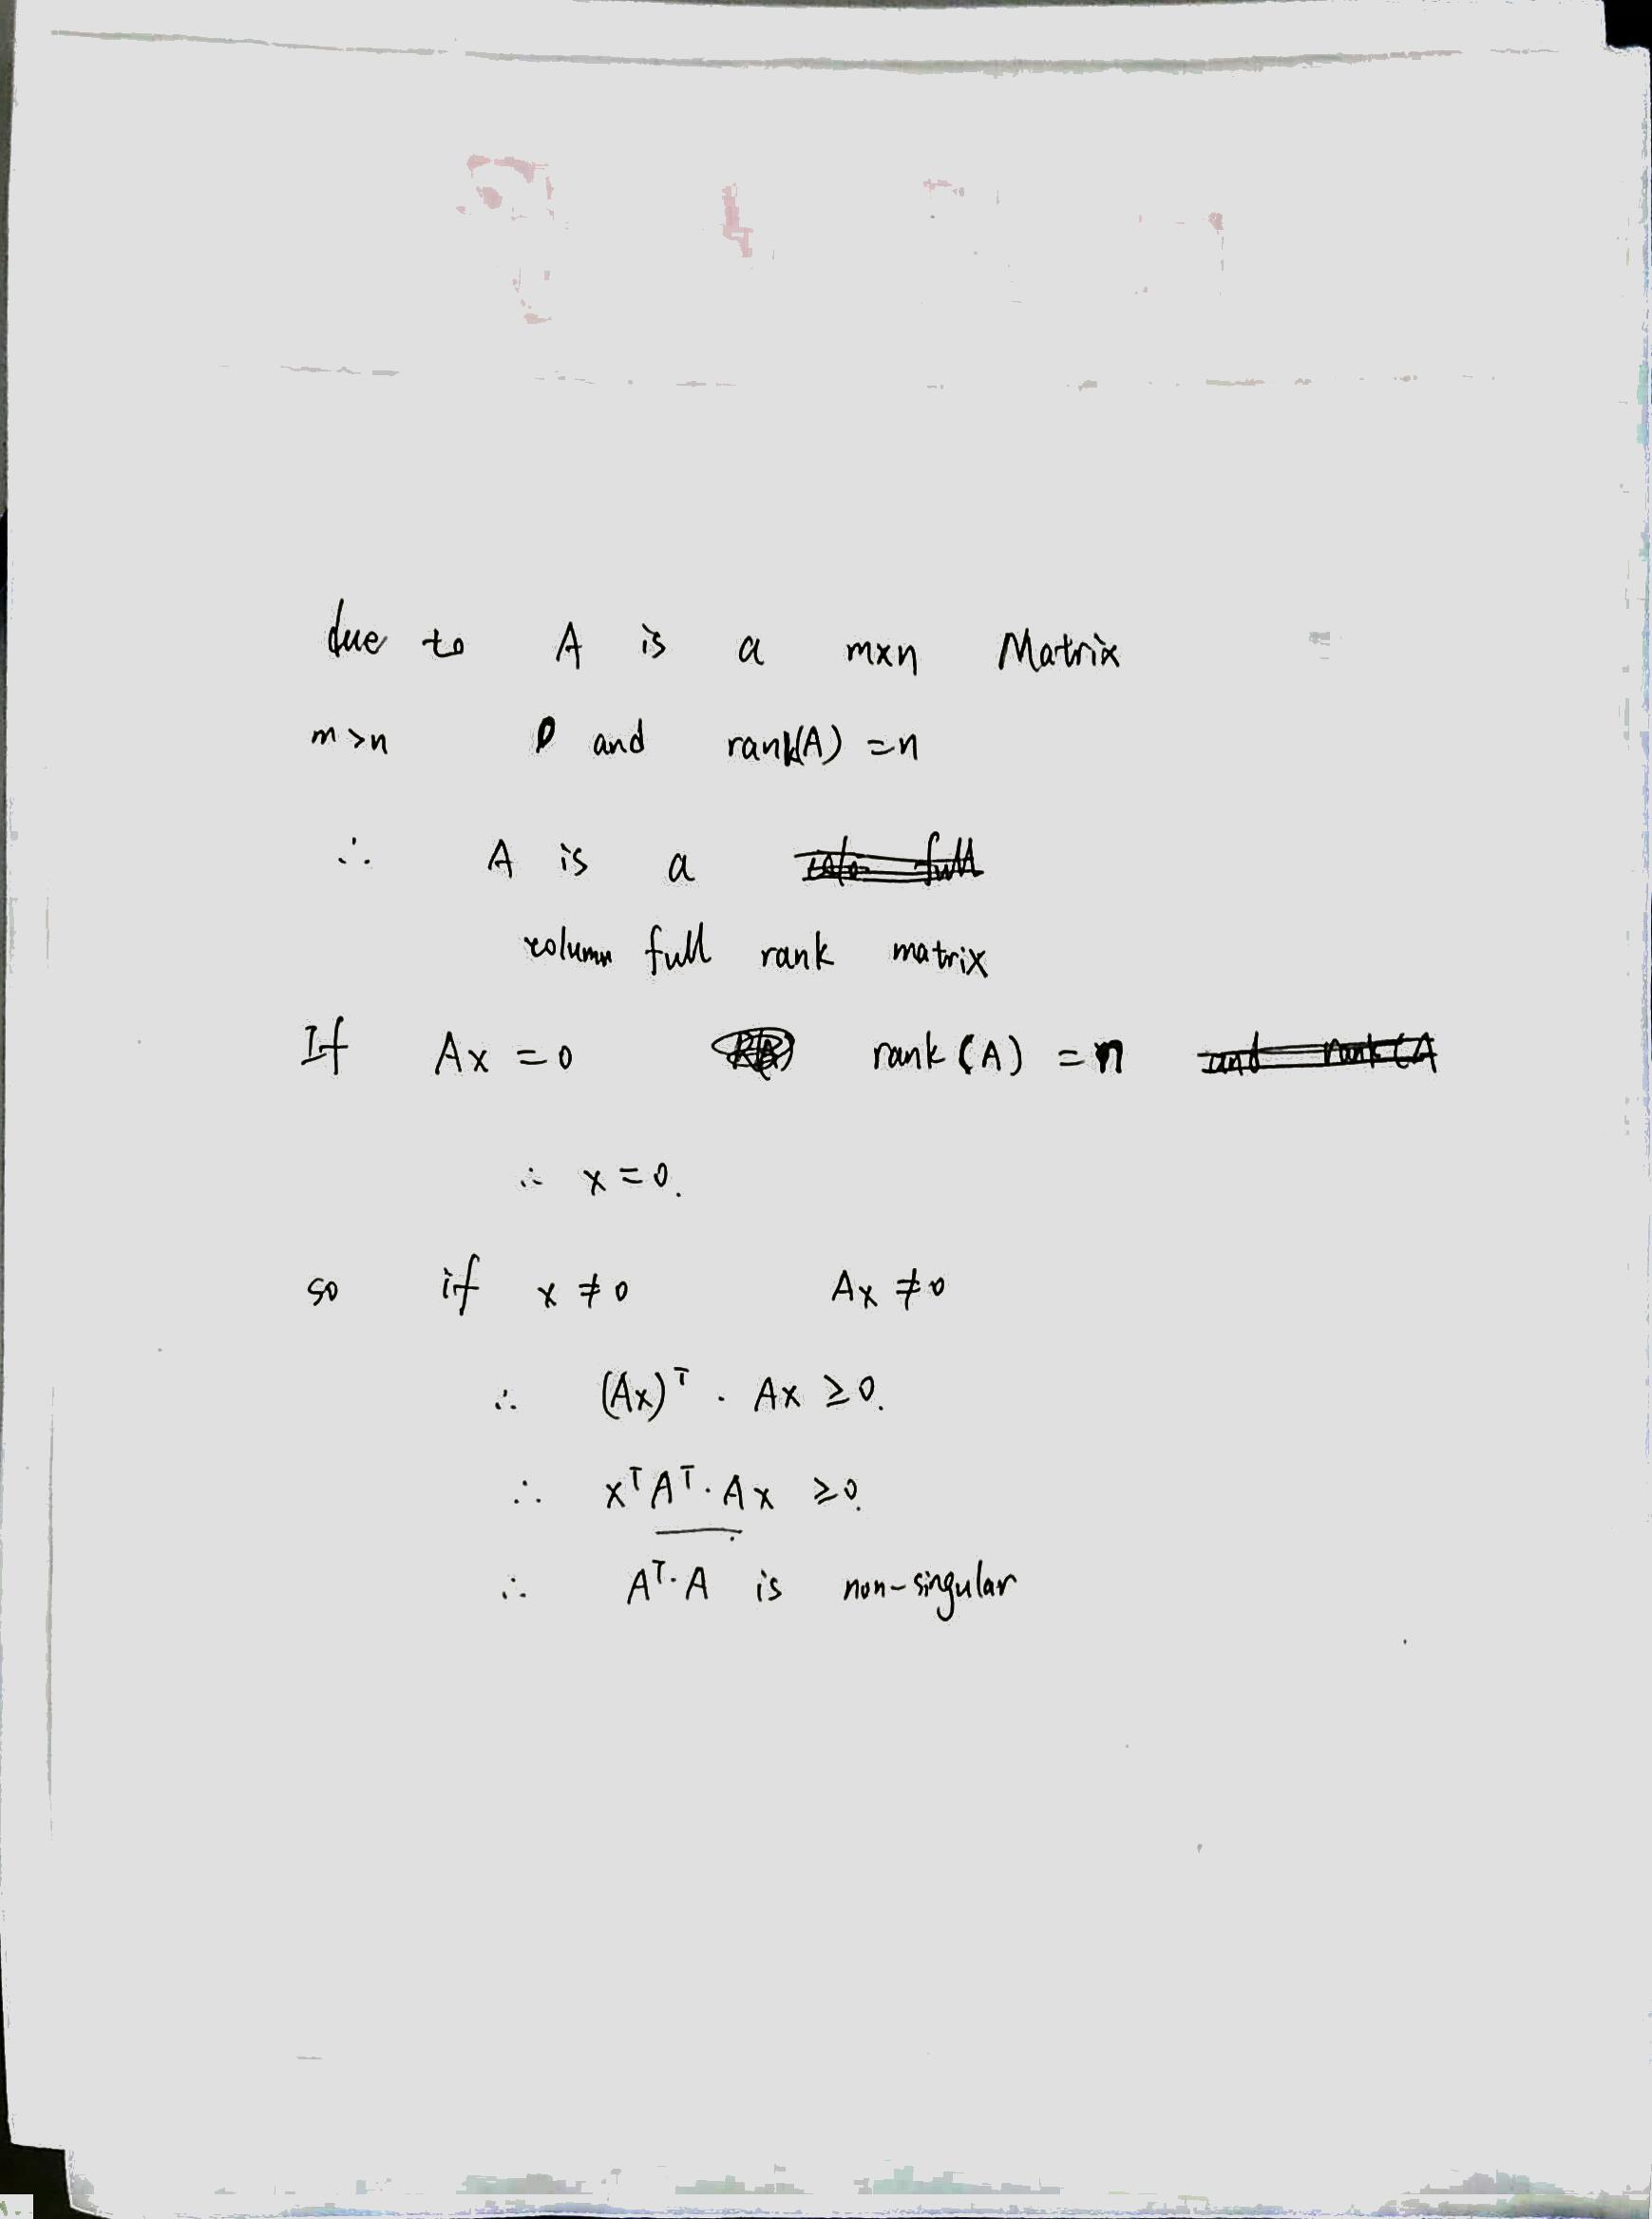 due to A is a m×n Matrix
m>n and rank(A) =n
∴ A is a
column full rank matrix
If Ax =0 rank (A) =n and rank (A
∴ x=0.
so if x ≠ 0 Ax ≠0
∴ (Ax)ᵀ · Ax ≥0.
∴ xᵀAᵀ·Ax ≥0.
∴ Aᵀ·A is non-singular